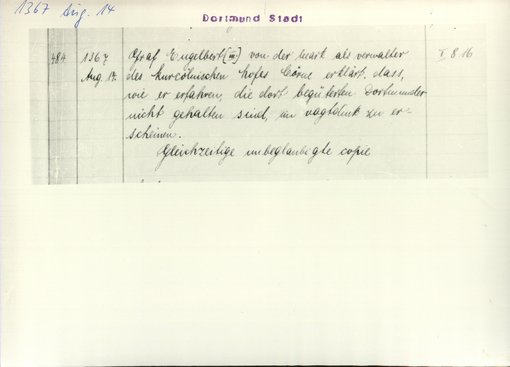 1367 Aug. 14
Dortmund Stadt
484
1367
Aug. 14.
Graf Engelbert [III] von der Mark als verwalter
des kurcölnischen hofes Cörne erklärt, dass,
wie er erfahren, die dort begüterten Dortmunder
nicht gehalten sind, im vogtdink zu er-
scheinen.
Gleichzeitige unbeglaubigte copie
I 8.16